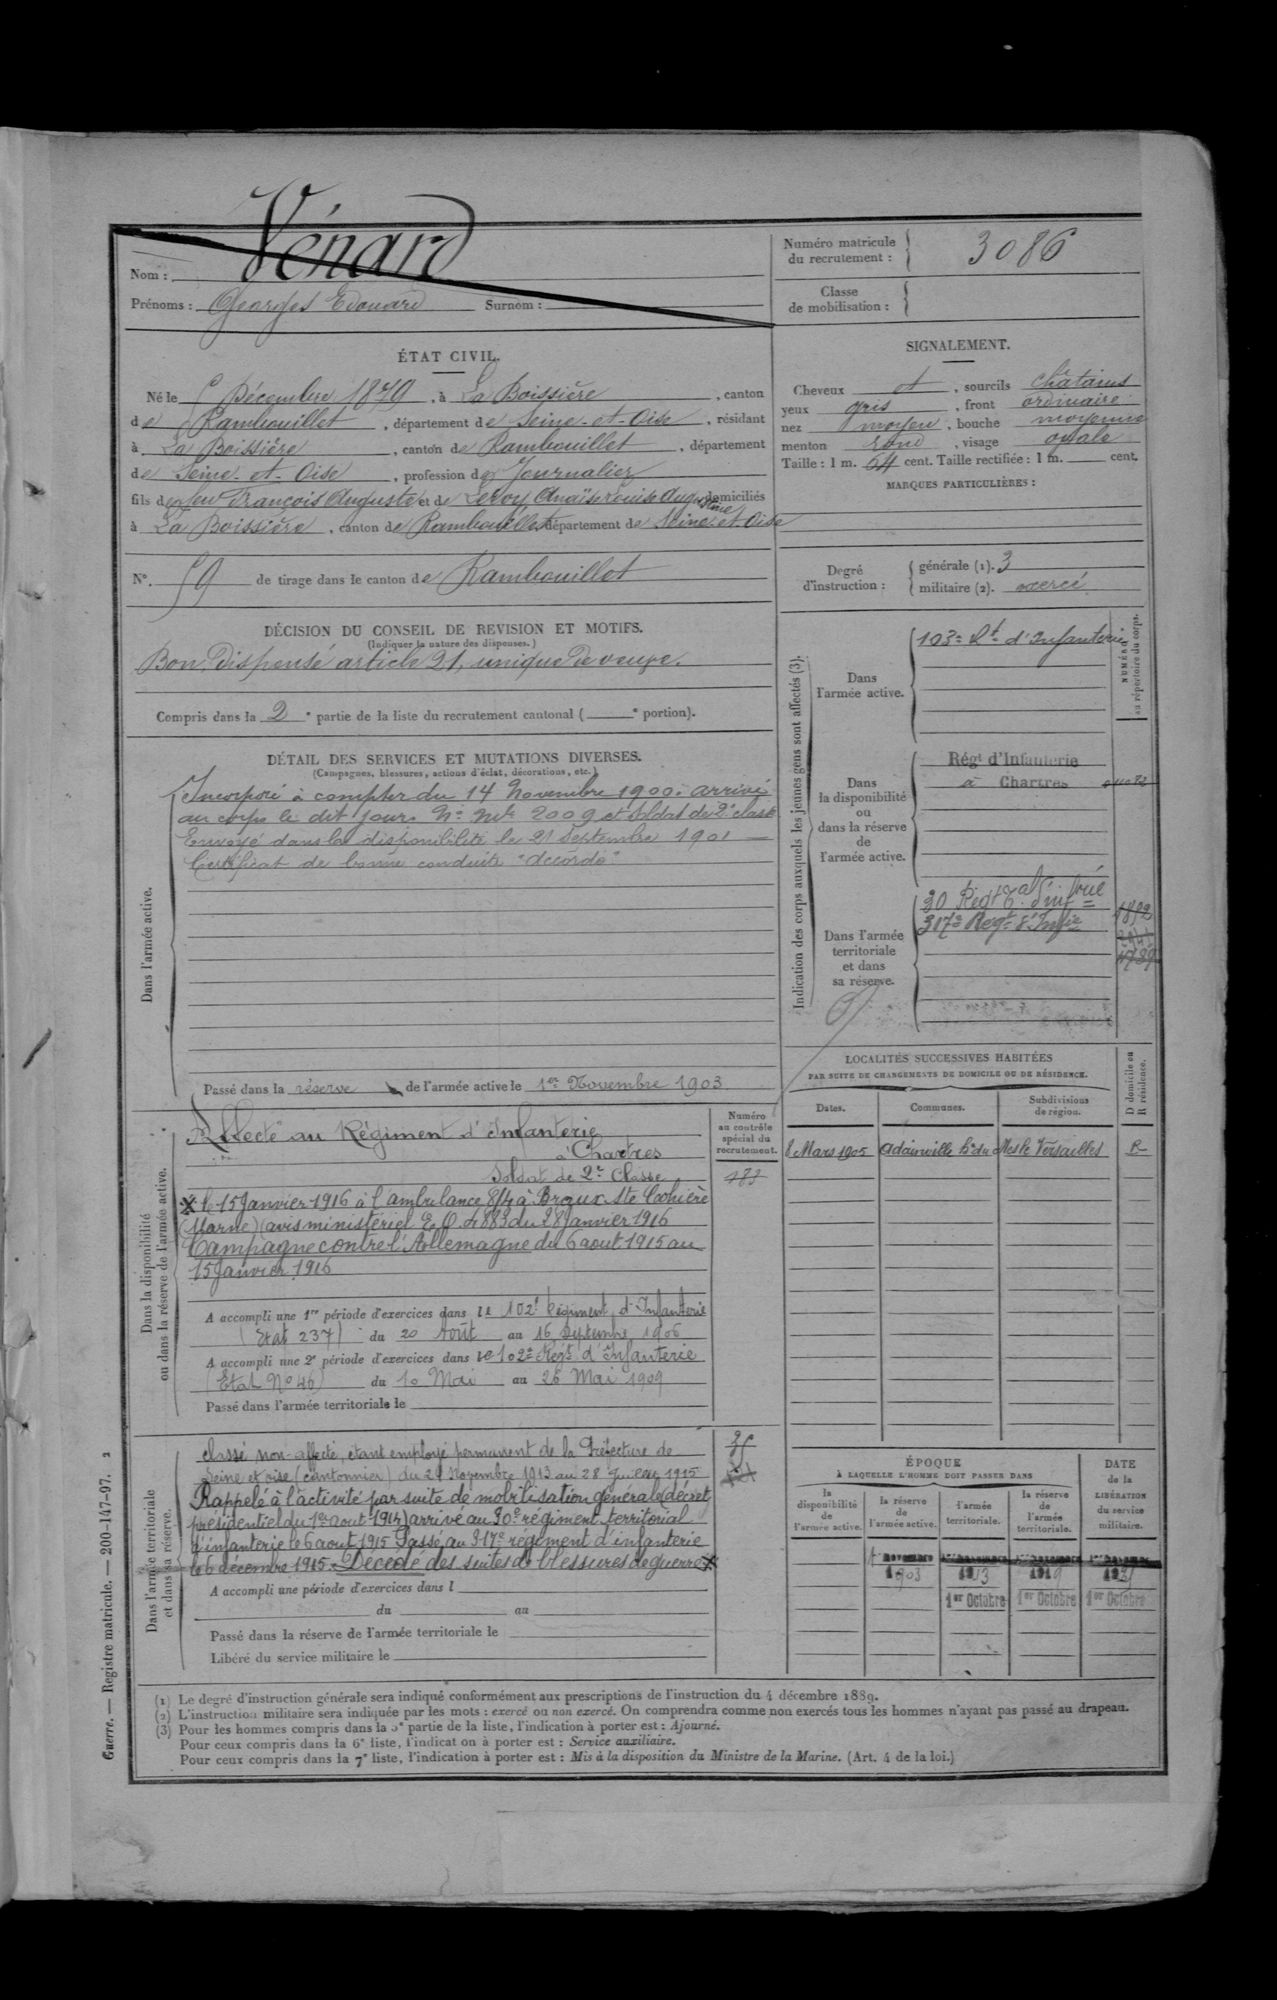 Nom : Vénard
Prénoms : Georges Edouard Surnom :
Numéro matricule du recrutement : 3086
Classe de mobilisation :
ÉTAT CIVIL.
Né le 5 Décembre 1879, à La Boissière, canton
de Rambouillet, département de Seine-et-Oise, résidant
à La Boissière, canton de Rambouillet, département
de Seine-et-Oise, profession de Journalier
fils de feu François Auguste et de Leroy Anaïs Louise Augustine domiciliés
à La Boissière, canton de Rambouillet département de Seine et Oise
N°. 59 de tirage dans le canton de Rambouillet
DÉCISION DU CONSEIL DE REVISION ET MOTIFS.
(Indiquer la nature des dispenses.)
Bon, Dispensé article 21, unique de veuve.
Compris dans la 2e partie de la liste du recrutement cantonal ( e portion).
DÉTAIL DES SERVICES ET MUTATIONS DIVERSES.
(Campagnes, blessures, actions d'éclat, décorations, etc.)
Dans l'armée active.
Incorporé à compter du 14 Novembre 1900. arrivé
au corps le dit jour. N° Mle 2009 et soldat de 2e classe
Envoyé dans la disponibilité le 21 Septembre 1901
Certificat de bonne conduite "accordé"
Passé dans la réserve de l'armée active le 1er Novembre 1903
Dans la disponibilité
ou dans la réserve de l'armée active.
Numéro
au contrôle
spécial du
recrutement.
Affecté au Régiment d'Infanterie
à Chartres
Soldat de 2e Classe
183
X le 15 Janvier 1916 à l'ambulance 8/4 à Braux Ste Cohière
(Marne) (avis ministériel E.O. 4883 du 28 Janvier 1916
Campagne contre l'Allemagne du 6 aout 1915 au
15 Janvier 1916
A accompli une 1re période d'exercices dans le 102e Régiment d'Infanterie
(Etat 237) du 20 Août au 16 Septembre 1906
A accompli une 2e période d'exercices dans le 102e Régt d'Infanterie
(Etat No 46) du 10 Mai au 26 Mai 1909
Passé dans l'armée territoriale le
Dans l'armée territoriale
et dans sa réserve.
classé non-affecté, étant employé permanent de la Préfecture de
Seine et oise (cantonnier) du 21 Novembre 1913 au 28 Juillet 1915
Rappelé à l'activité par suite de mobilisation générale (décret
présidentiel du 1er aout 1914) arrivé au 30e régiment territorial
d'infanterie le 6 aout 1915 Passé au 317e régiment d'infanterie
le 6 décembre 1915. Décédé des suites de blessures de guerre X
A accompli une période d'exercices dans l
du au
Passé dans la réserve de l'armée territoriale le
Libéré du service militaire le
SIGNALEMENT.
Cheveux et, sourcils châtains
yeux gris, front ordinaire
nez moyen, bouche moyenne
menton rond, visage ovale
Taille : 1 m. 64 cent. Taille rectifiée : 1 m. cent.
MARQUES PARTICULIÈRES :
Degré d'instruction : générale (1). 3
militaire (2). exercé
Indication des corps auxquels les jeunes gens sont affectés (3).
NUMÉRO
au répertoire du corps.
Dans
l'armée active.
103e Rt d'Infanterie
Dans
la disponibilité
ou
dans la réserve
de
l'armée active.
Régt d'Infanterie
à Chartres
Dans l'armée
territoriale
et dans
sa réserve.
30 Regt Tal d'Infrie
317e Regt d'Infie
LOCALITÉS SUCCESSIVES HABITÉES
PAR SUITE DE CHANGEMENTS DE DOMICILE OU DE RÉSIDENCE.
D domicile ou
R résidence.
Dates. Communes. Subdivisions de région.
8 Mars 1905 Adainville Versailles R
ÉPOQUE
À LAQUELLE L'HOMME DOIT PASSER DANS
la disponibilité de l'armée active.
la réserve de l'armée active.
l'armée territoriale.
la réserve de l'armée territoriale.
DATE
de la
LIBÉRATION
du service
militaire.
1er novembre
1903 1913 1919
1er Octobre 1er Octobre 1er Octobre
(1) Le degré d'instruction générale sera indiqué conformément aux prescriptions de l'instruction du 4 décembre 1889.
(2) L'instruction militaire sera indiquée par les mots : exercé ou non exercé. On comprendra comme non exercés tous les hommes n'ayant pas passé au drapeau.
(3) Pour les hommes compris dans la 5e partie de la liste, l'indication à porter est : Ajourné.
Pour ceux compris dans la 6e liste, l'indicat on à porter est : Service auxiliaire.
Pour ceux compris dans la 7e liste, l'indication à porter est : Mis à la disposition du Ministre de la Marine. (Art. 4 de la loi.)
Guerre. — Registre matricule. — 200-147-97. 2